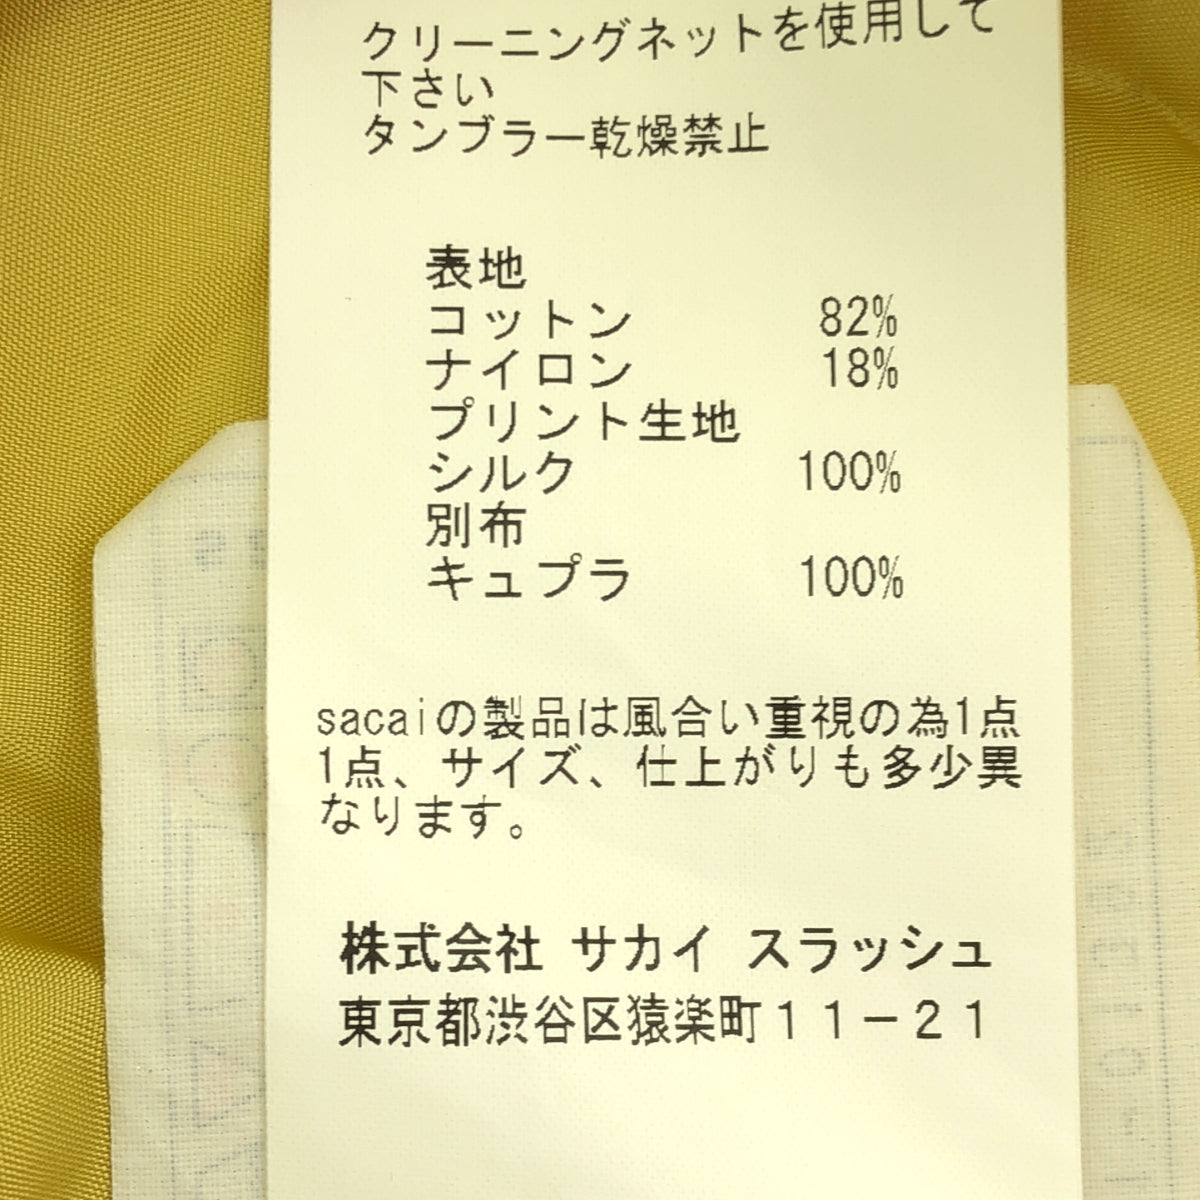 クリーニングネットを使用して
下さい
タンブラー乾燥禁止
表地
コットン 82%
ナイロン 18%
プリント生地
シルク 100%
別布
キュプラ 100%
sacaiの製品は風合い重視の為1点
1点、サイズ、仕上がりも多少異
なります。
株式会社 サカイ スラッシュ
東京都渋谷区猿楽町11-21